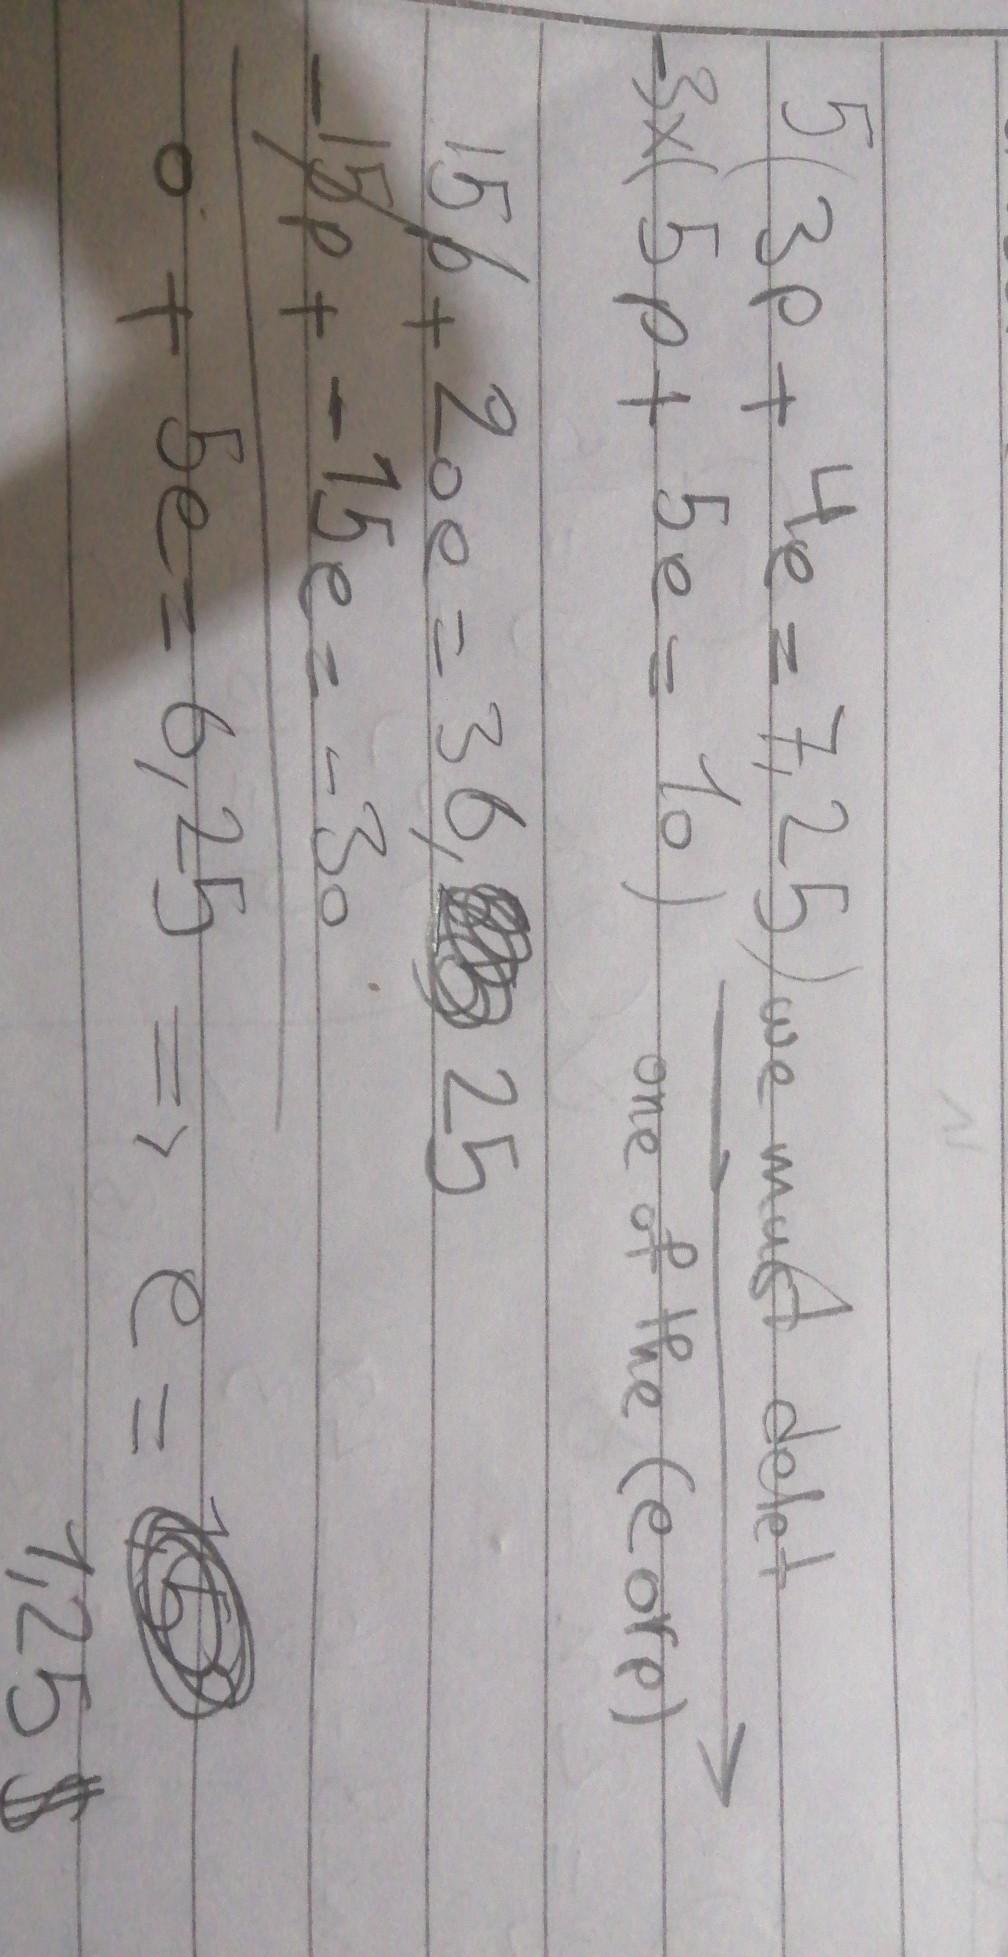 5(3p + 4e = 7,25) we must delet
-3x(5p + 5e = 10) one of the (e or p)
15p + 20e = 36, 25
-15p + -15e = -30
0 + 5e = 6,25 => e =
1,25 $